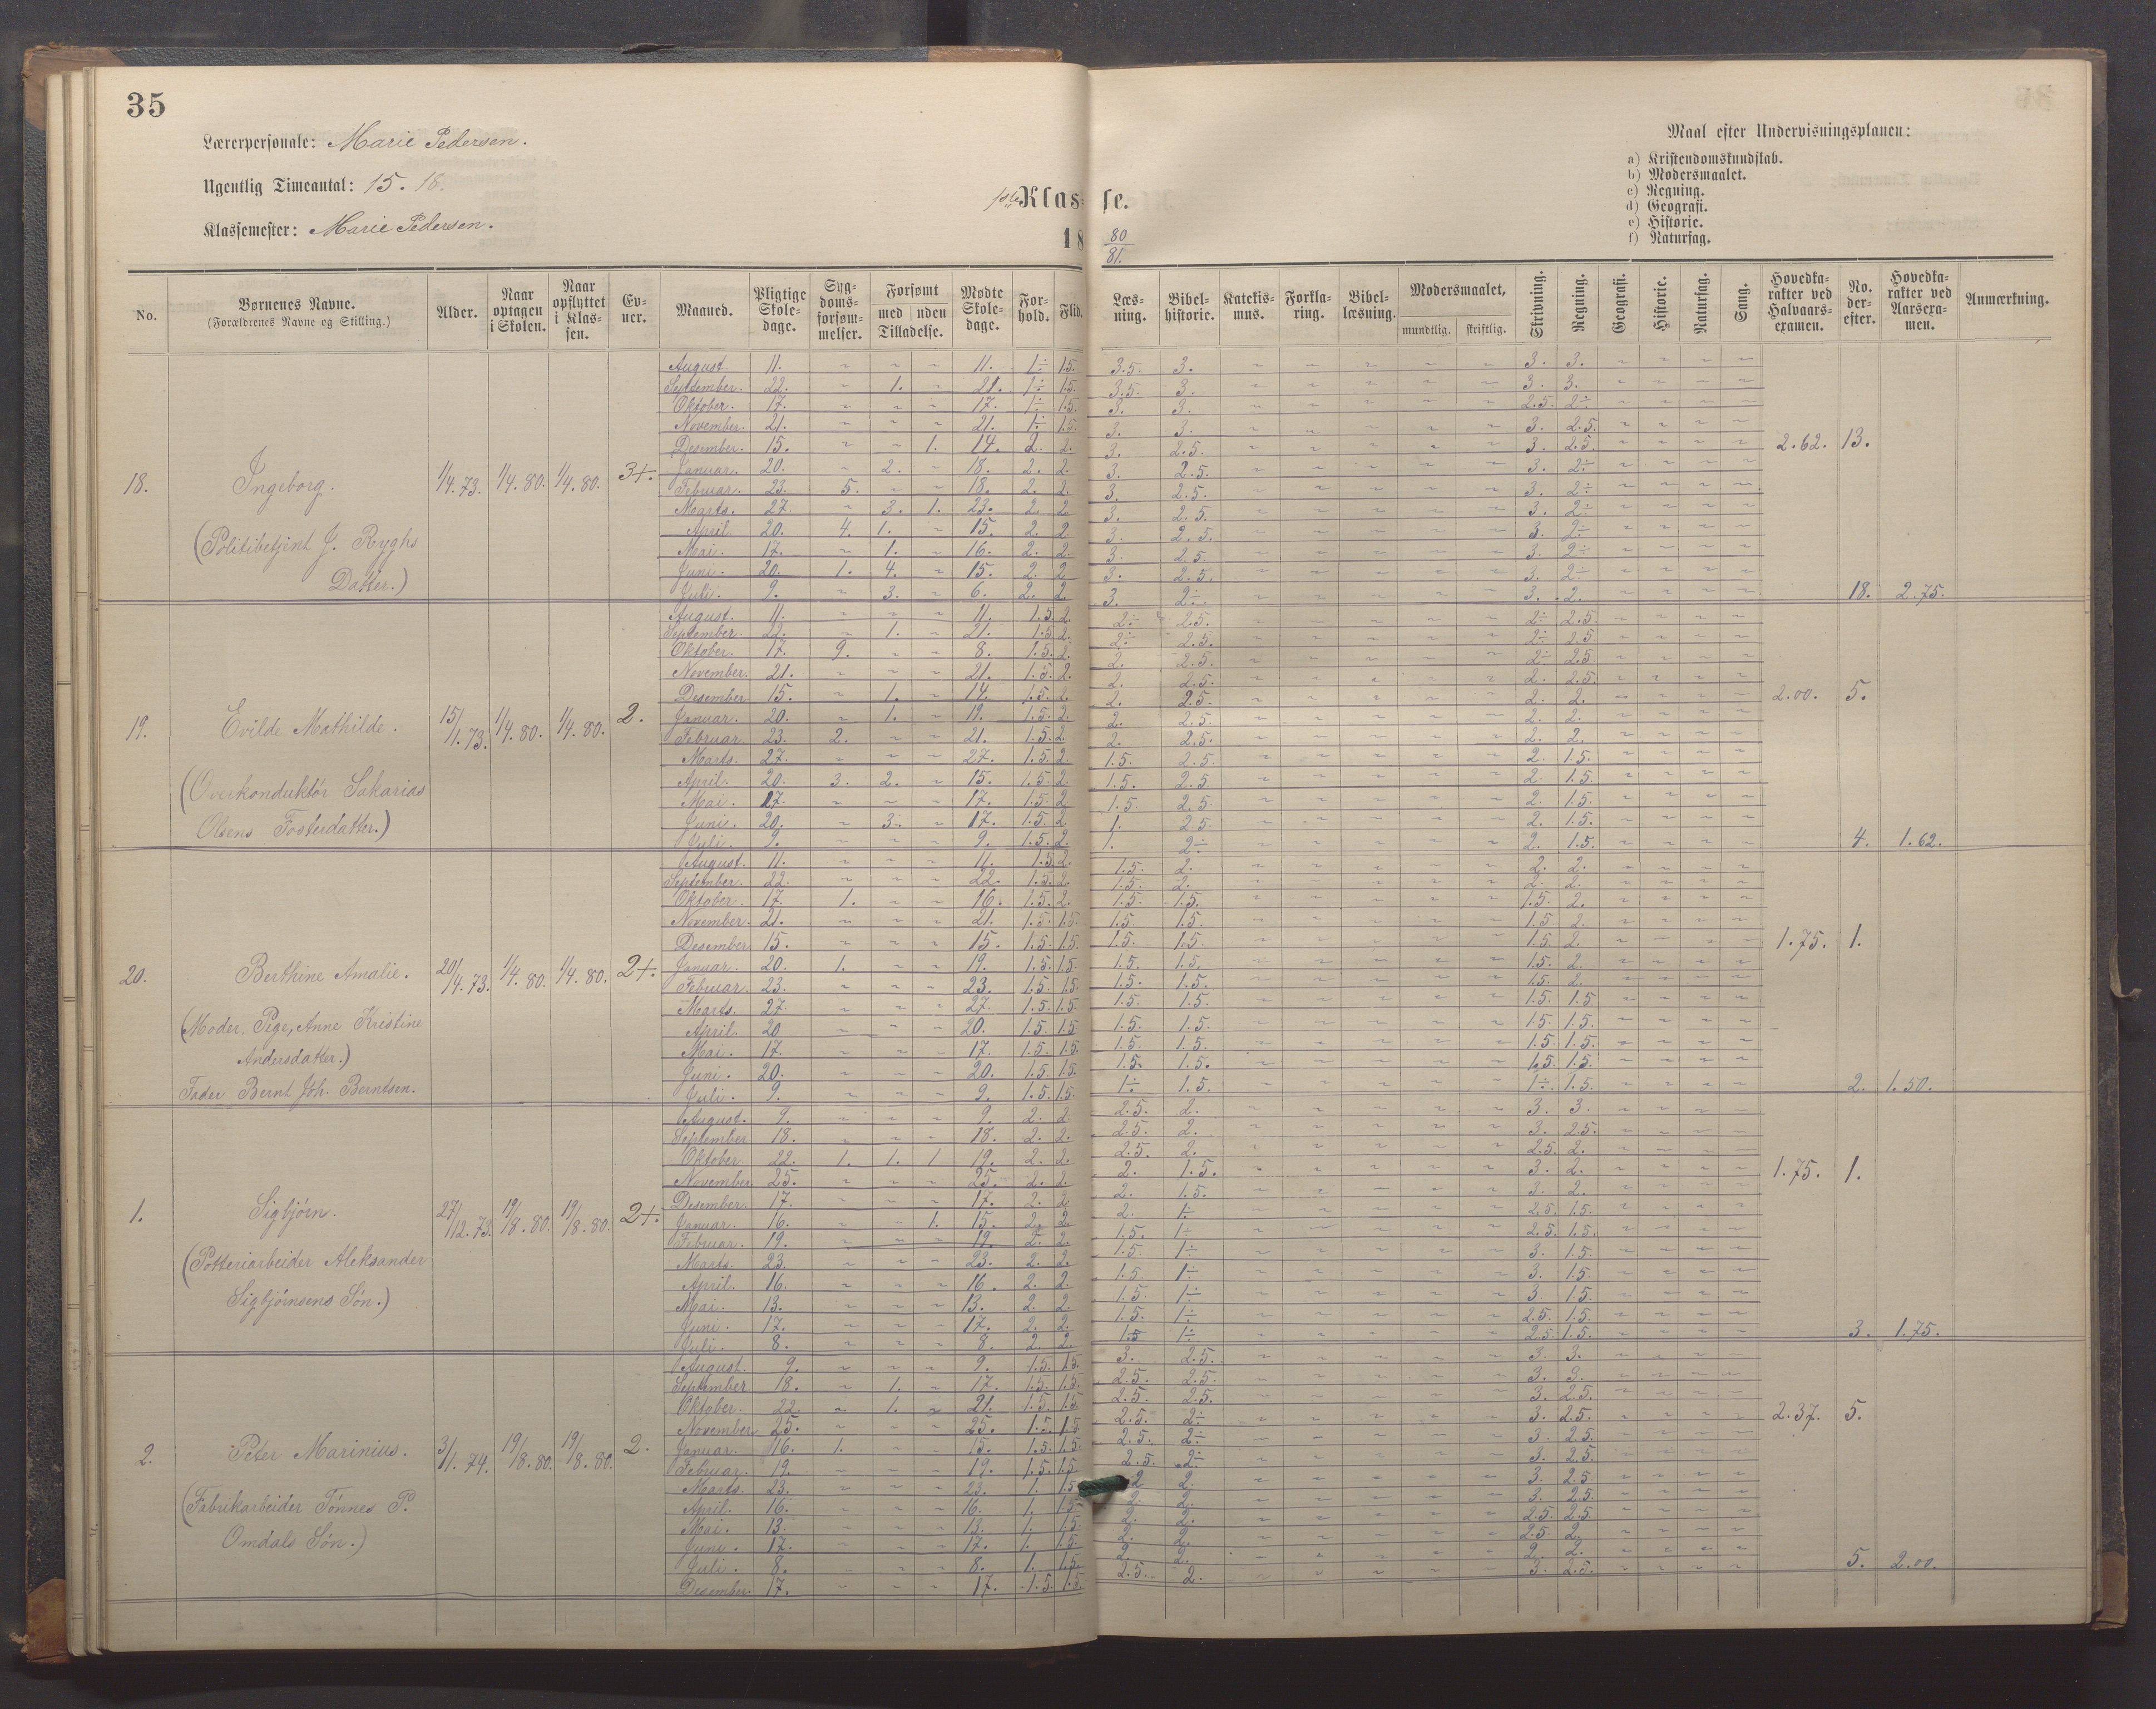 35
Lærerpersonale: Marie Pedersen.
Ugentlig Timeantal: 15. 18.
Klassemester: Marie Pedersen.
1ste Klasse.
18 80/81.
Maal efter Undervisningsplanen:
a) Kristendomskundskab.
b) Modersmaalet.
c) Regning.
d) Geografi.
e) Historie.
f) Naturfag.
No. Børnenes Navne. (Forældrenes Navne og Stilling.) Alder. Naar optagen i Skolen. Naar opflyttet i Klassen. Evner. Maaned. Pligtige Skoledage. Sygdomsforsømmelser. Forsømt med uden Tilladelse. Mødte Skoledage. Forhold. Flid. Læsning. Bibelhistorie. Katekismus. Forklaring. Bibellæsning. Modersmaalet, mundtlig. skriftlig. Skrivning. Regning. Geografi. Historie. Naturfag. Sang. Hovedkarakter ved Halvaarsexamen. No. derefter. Hovedkarakter ved Aarsexamen. Anmærkning.
18. Ingeborg. 1/4.73. 1/4.80. 1/4.80. 3+.
(Politibetjent J. Ryghs
Datter.)
August. 11. ~ ~ ~ 11. 1÷ 1.5. 3.5. 3. ~ ~ ~ ~ ~ 3. 3. ~ ~ ~ ~
September. 22. ~ 1. ~ 21. 1÷ 1.5. 3.5. 3. ~ ~ ~ ~ ~ 3. 3. ~ ~ ~ ~
Oktober. 17. ~ ~ ~ 17. 1÷ 1.5. 3. 3. ~ ~ ~ ~ ~ 2.5. 2÷ ~ ~ ~ ~
November. 21. ~ ~ ~ 21. 1÷ 1.5. 3. 3. ~ ~ ~ ~ ~ 3. 2.5. ~ ~ ~ ~
Desember. 15. ~ ~ 1. 14. 2. 2. 3. 2.5. ~ ~ ~ ~ ~ 3. 2.5. ~ ~ ~ ~ 2.62. 13.
Januar. 20. ~ 2. ~ 18. 2. 2. 3. 2.5. ~ ~ ~ ~ ~ 3. 2÷ ~ ~ ~ ~
Februar. 23. 5. ~ ~ 18. 2. 2. 3. 2.5. ~ ~ ~ ~ ~ 3. 2÷ ~ ~ ~ ~
Marts. 27. ~ 3. 1. 23. 2. 2. 3. 2.5. ~ ~ ~ ~ ~ 3. 2÷ ~ ~ ~ ~
April. 20. 4. 1. ~ 15. 2. 2. 3. 2.5. ~ ~ ~ ~ ~ 3. 2÷ ~ ~ ~ ~
Mai. 17. ~ 1. ~ 16. 2. 2. 3. 2.5. ~ ~ ~ ~ ~ 3. 2÷ ~ ~ ~ ~
Juni. 20. 1. 4. ~ 15. 2. 2. 3. 2.5. ~ ~ ~ ~ ~ 3. 2÷ ~ ~ ~ ~
Juli. 9. ~ 3. ~ 6. 2. 2. 3. 2÷ ~ ~ ~ ~ ~ 3. 2. ~ ~ ~ ~ 18. 2.75.
19. Evilde Mathilde. 15/1.73. 1/4.80. 1/4.80. 2.
(Overkonduktør Sakarias
Olsens Fosterdatter.)
August. 11. ~ ~ ~ 11. 1.5. 2. 2÷ 2.5. ~ ~ ~ ~ ~ 2÷ 2.5. ~ ~ ~ ~
September. 22. ~ 1. ~ 21. 1.5. 2. 2÷ 2.5. ~ ~ ~ ~ ~ 2÷ 2.5. ~ ~ ~ ~
Oktober. 17. 9. ~ ~ 8. 1.5. 2. 2. 2.5. ~ ~ ~ ~ ~ 2÷ 2.5 ~ ~ ~ ~
November. 21. ~ ~ ~ 21. 1.5. 2. 2. 2.5. ~ ~ ~ ~ ~ 2. 2.5. ~ ~ ~ ~
Desember. 15. ~ 1. ~ 14. 1.5. 2. 2. 2.5. ~ ~ ~ ~ ~ 2. 2. ~ ~ ~ ~ 2.00. 5.
Januar. 20. ~ 1. ~ 19. 1.5. 2. 2. 2.5. ~ ~ ~ ~ ~ 2. 2. ~ ~ ~ ~
Februar. 23. 2. ~ ~ 21. 1.5. 2. 2. 2.5. ~ ~ ~ ~ ~ 2. 2. ~ ~ ~ ~
Marts. 27. ~ ~ ~ 27. 1.5. 2. 1.5. 2.5. ~ ~ ~ ~ ~ 2. 1.5. ~ ~ ~ ~
April. 20. 3. 2. ~ 15. 1.5. 2. 1.5. 2.5. ~ ~ ~ ~ ~ 2 1.5. ~ ~ ~ ~
Mai. 17. ~ ~ ~ 17. 1.5. 2. 1.5. 2.5. ~ ~ ~ ~ ~ 2. 1.5. ~ ~ ~ ~
Juni. 20. ~ 3. ~ 17. 1.5. 2. 1. 2.5. ~ ~ ~ ~ ~ 2. 1.5. ~ ~ ~ ~
Juli. 9. ~ ~ ~ 9. 1.5. 2. 1. 2÷ ~ ~ ~ ~ ~ 2. 1.5. ~ ~ ~ ~ 4. 1.62.
20. Berthine Amalie. 20/4.73. 1/4.80. 1/4.80. 2+.
(Moder. Pige, Anne Kristine
Andersdatter.)
Fader Bernt Joh. Berntsen.
August. 11. ~ ~ ~ 11. 1.5. 2. 1.5. 2. ~ ~ ~ ~ ~ 2. 2. ~ ~ ~ ~
September. 22. ~ ~ ~ 22. 1.5. 2. 1.5. 2. ~ ~ ~ ~ ~ 2. 2. ~ ~ ~ ~
Oktober. 17. 1. ~ ~ 16. 1.5. 2. 1.5. 1.5. ~ ~ ~ ~ ~ 1.5. 2. ~ ~ ~ ~
November. 21. ~ ~ ~ 21. 1.5. 1.5. 1.5. 1.5. ~ ~ ~ ~ ~ 1.5. 2. ~ ~ ~ ~
Desember. 15. ~ ~ ~ 15. 1.5. 1.5. 1.5. 1.5. ~ ~ ~ ~ ~ 1.5. 2. ~ ~ ~ ~ 1.75. 1.
Januar. 20. 1. ~ ~ 19. 1.5. 1.5. 1.5. 1.5. ~ ~ ~ ~ ~ 1.5. 2. ~ ~ ~ ~
Februar. 23. ~ ~ ~ 23. 1.5. 1.5. 1.5. 1.5. ~ ~ ~ ~ ~ 1.5. 2. ~ ~ ~ ~
Marts. 27. ~ ~ ~ 27. 1.5. 1.5. 1.5. 1.5. ~ ~ ~ ~ ~ 1.5. 1.5. ~ ~ ~ ~
April. 20 ~ ~ ~ 20. 1.5. 1.5 1.5. 1.5. ~ ~ ~ ~ ~ 1.5. 1.5. ~ ~ ~ ~
Mai. 17. ~ ~ ~ 17. 1.5. 1.5. 1.5. 1.5. ~ ~ ~ ~ ~ 1.5. 1.5. ~ ~ ~ ~
Juni. 20. ~ ~ ~ 20. 1.5. 1.5. 1.5. 1.5. ~ ~ ~ ~ ~ 1.5. 1.5. ~ ~ ~ ~
Juli. 9. ~ ~ ~ 9. 1.5. 1.5. 1÷ 1.5. ~ ~ ~ ~ ~ 1÷ 1.5. ~ ~ ~ ~ 2. 1.50.
1. Sigbjørn. 27/12.73. 19/8.80. 19/8.80. 2+.
(Potteriarbeider Aleksander
Sigbjørnsens Søn.)
August. 9. ~ ~ ~ 9. 2. 2. 2.5. 2. ~ ~ ~ ~ ~ 3. 3. ~ ~ ~ ~
September 18. ~ ~ ~ 18. 2. 2. 2.5. 2. ~ ~ ~ ~ ~ 3. 2.5. ~ ~ ~ ~
Oktober. 22. 1. 1. 1 19. 2. 2. 2.5. 2. ~ ~ ~ ~ ~ 2.5. 2. ~ ~ ~ ~
November 25. ~ ~ ~ 25. 2. 2. 2. 1.5. ~ ~ ~ ~ ~ 3. 2. ~ ~ ~ ~ 1.75. 1.
Desember. 17. ~ ~ ~ 17. 2. 2. 2. 1.5. ~ ~ ~ ~ ~ 3. 2. ~ ~ ~ ~
Januar. 16. ~ ~ 1. 15. 2. 2. 2. 1÷ ~ ~ ~ ~ ~ 2.5. 1.5. ~ ~ ~ ~
Februar. 19. ~ ~ ~ 19. 2. 2. 1.5. 1÷ ~ ~ ~ ~ ~ 2.5. 1.5. ~ ~ ~ ~
Marts. 23. ~ ~ ~ 23. 2. 2. 1.5. 1÷ ~ ~ ~ ~ ~ 3. 1.5. ~ ~ ~ ~
April. 16. ~ ~ ~ 16. 2. 2. 1.5 1÷ ~ ~ ~ ~ ~ 3. 1.5. ~ ~ ~ ~
Mai. 13. ~ ~ ~ 13. 2. 2. 1.5. 1÷ ~ ~ ~ ~ ~ 3. 1.5 ~ ~ ~ ~
Juni. 17. ~ ~ ~ 17. 2. 2. 1.5. 1÷ ~ ~ ~ ~ ~ 2.5. 1.5. ~ ~ ~ ~
Juli. 8. ~ ~ ~ 8. 2. 2. 1.5 1÷ ~ ~ ~ ~ ~ 2.5. 1.5. ~ ~ ~ ~ 3. 1.75.
2. Peter Marinius. 3/1.74. 19/8.80. 19/8.80. 2.
(Fabrikarbeider Tønnes P.
Omdals Søn.)
August. 9. ~ ~ ~ 9. 1.5. 1.5. 3. 2.5. ~ ~ ~ ~ ~ 3. 3. ~ ~ ~ ~
September. 18. ~ 1. ~ 17. 1.5. 1.5. 2.5. 2.5. ~ ~ ~ ~ ~ 3. 3. ~ ~ ~ ~
Oktober. 22. ~ 1. ~ 21. 1.5. 1.5. 2.5. 2.5. ~ ~ ~ ~ ~ 3. 2.5. ~ ~ ~ ~
November 25. ~ ~ ~ 25. 1.5. 1.5 2.5. 2÷ ~ ~ ~ ~ ~ 3. 2.5. ~ ~ ~ ~ 2.37. 5.
Januar. 16. 1. ~ ~ 15. 1.5. 1.5. 2.5. 2÷ ~ ~ ~ ~ ~ 3. 2.5. ~ ~ ~ ~
Februar. 19. ~ ~ ~ 19. 1.5. 1.5 2.5. 2÷ ~ ~ ~ ~ ~ 3. 2.5. ~ ~ ~ ~
Marts. 23. ~ ~ ~ 23. 1. 1.5 2 2. ~ ~ ~ ~ ~ 3. 2.5 ~ ~ ~ ~
April. 16. ~ ~ ~ 16. 1. 1.5 2. 2. ~ ~ ~ ~ ~ 3. 2.5. ~ ~ ~ ~
Mai. 13. ~ ~ ~ 13. 1. 1.5. 2. 2. ~ ~ ~ ~ ~ 2.5. 2.5. ~ ~ ~ ~
Juni. 17. ~ ~ ~ 17. 1. 1.5. 2. 2. ~ ~ ~ ~ ~ 2.5 2. ~ ~ ~ ~
Juli. 8. ~ ~ ~ 8. 1. 1.5. 2. 2. ~ ~ ~ ~ ~ 2. 2. ~ ~ ~ ~ 5. 2.00.
Desember. 17. ~ ~ ~ 17. 1.5. 1.5. 2.5. 2. ~ ~ ~ ~ ~ 3. 2.5. ~ ~ ~ ~